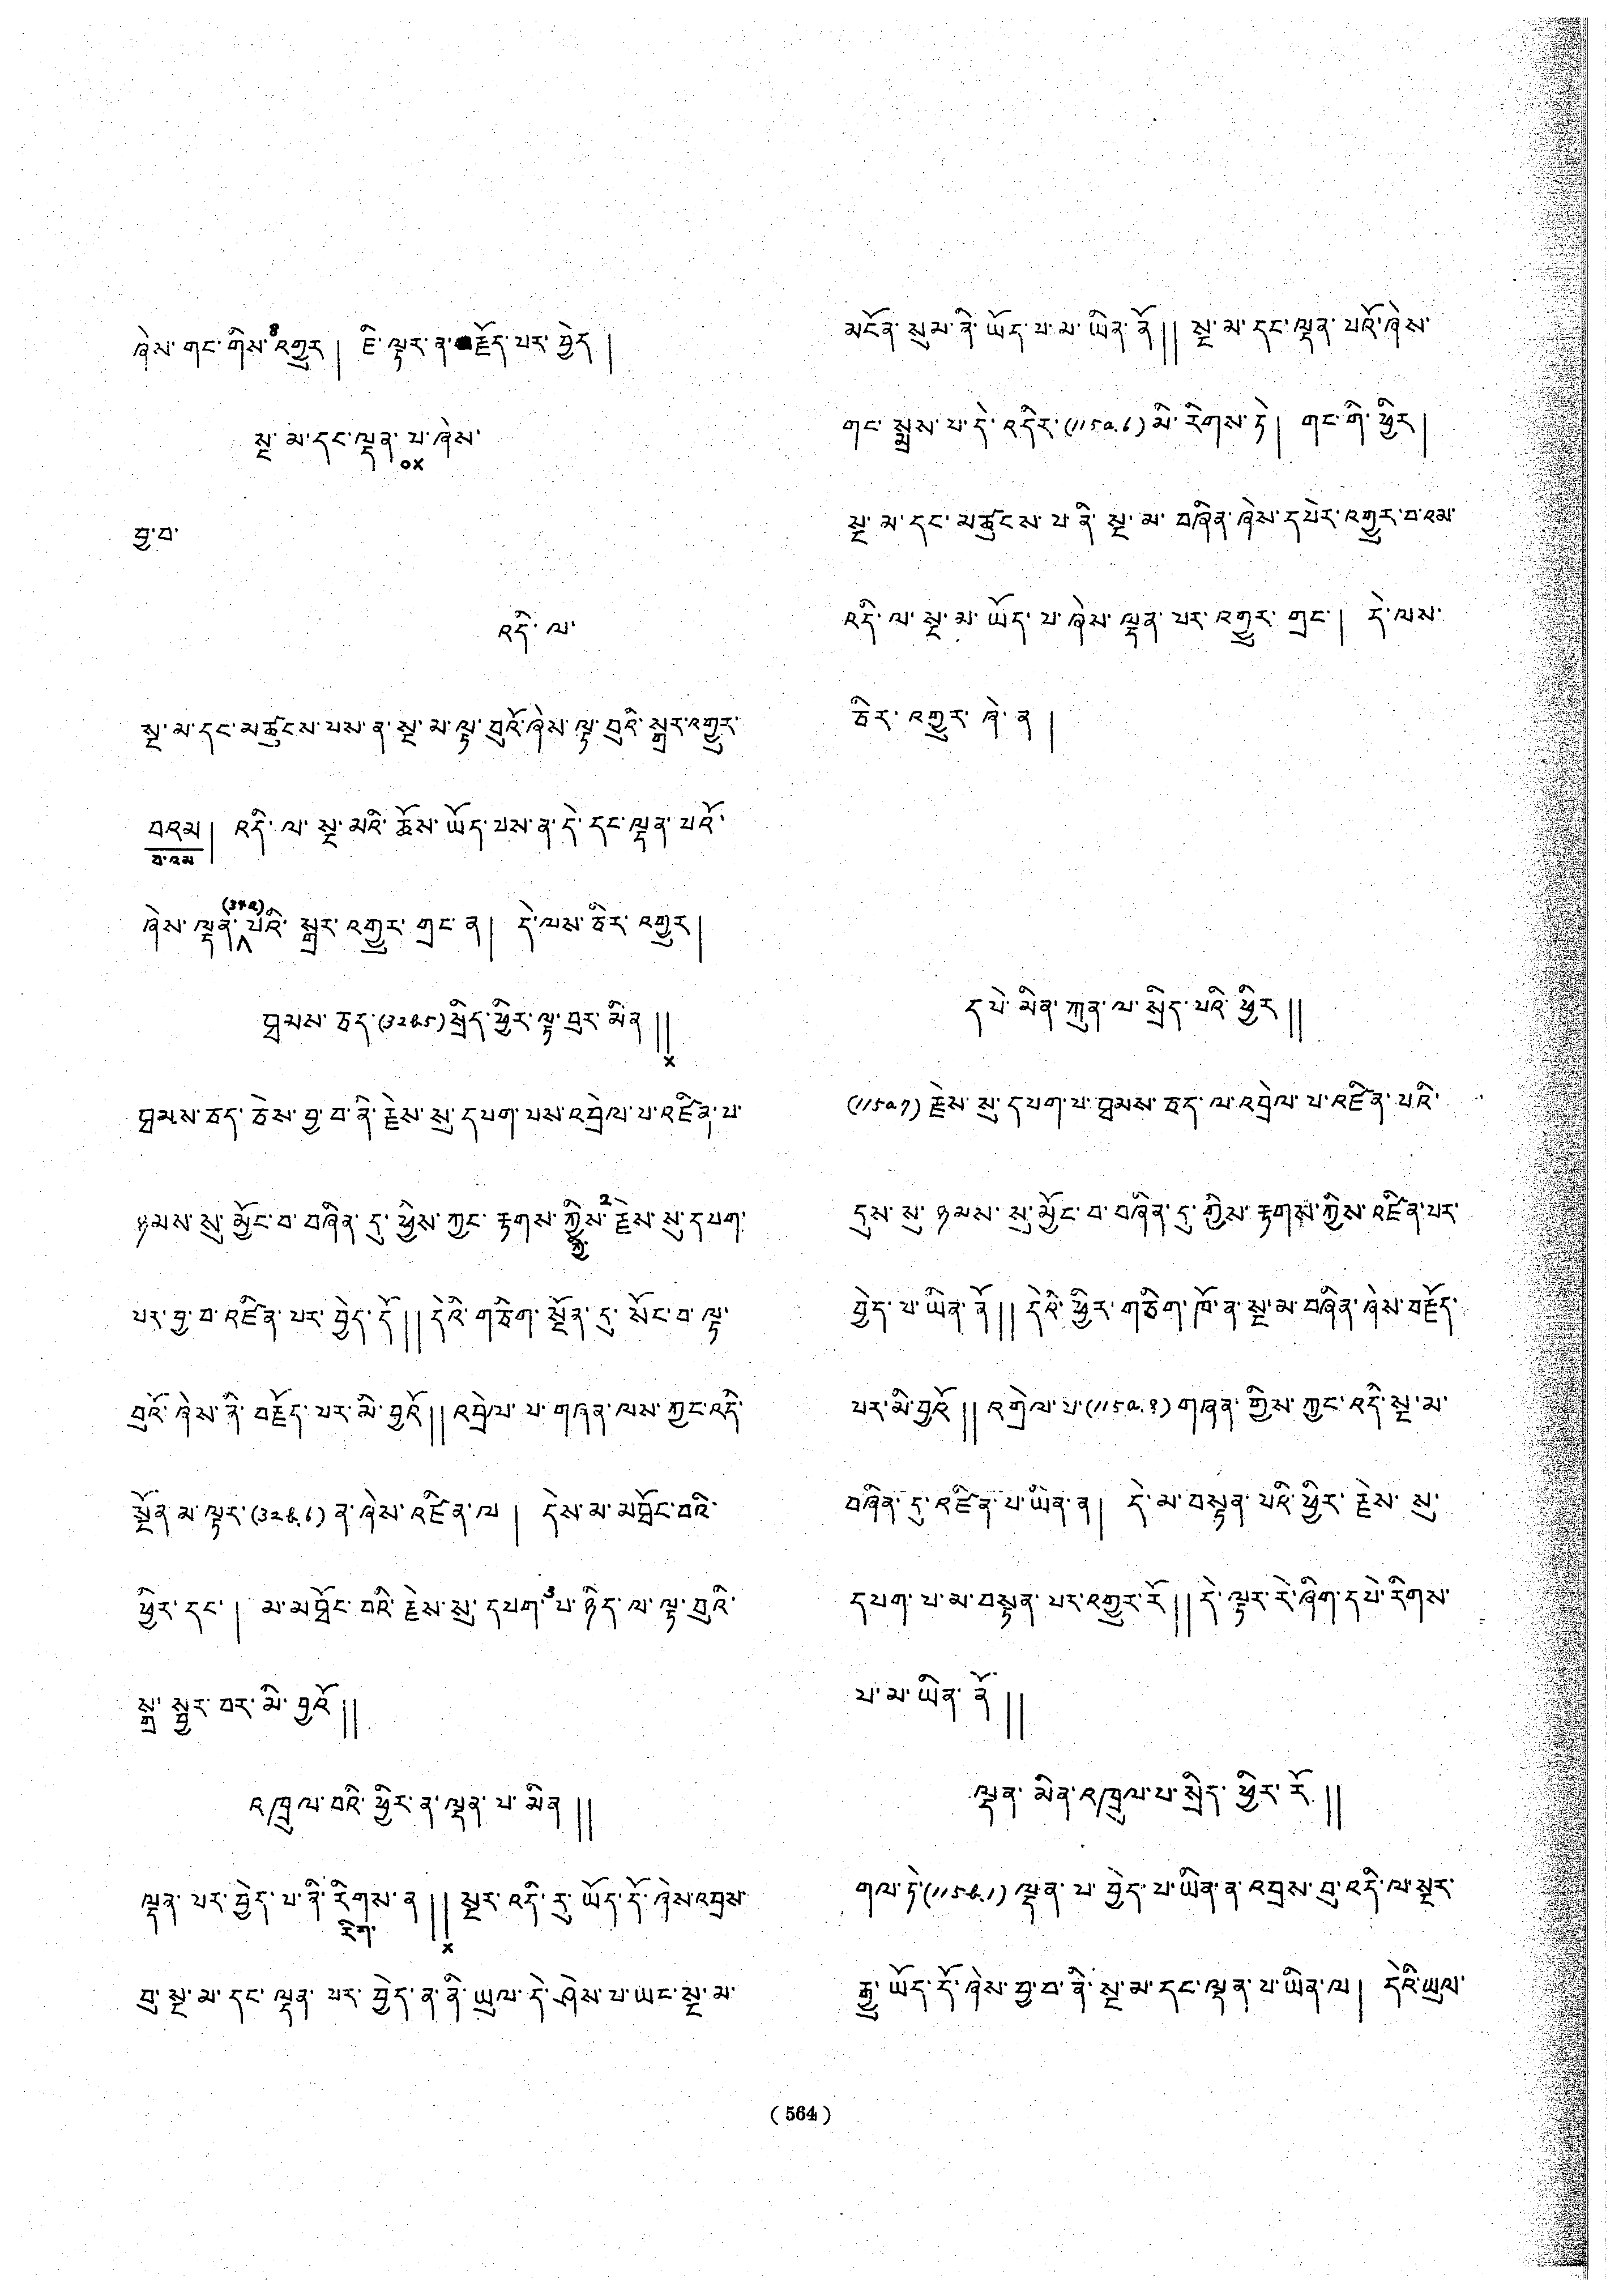 ཞེས་གང་གིས་8འགྱུར། ཇི་ལྟར་ན་རྗོད་པར་བྱེད།
སྔ་མ་དང་ལྡན་པ་ཞེས་
ox
བྱ་བ་
འདི་ལ་
སྔ་མ་དང་མཚུངས་པས་ན་སྔ་མ་ལྟ་བུའོ་ཞེས་ལྟ་བུའི་སྒྲར་འགྱུར་
བའམ། འདི་ལ་སྔ་མའི་ཆོས་ཡོད་པས་ན་དེ་དང་ལྡན་པའོ་
བ་འམ
(37a)
ཞེས་ལྡན་པའི་སྒྲར་འགྱུར་གྲང་ན། དེ་ལས་ཅིར་འགྱུར།
ཐམས་ཅད་(32b5)སྲིད་ཕྱིར་ལྟ་བུར་མིན༎
x
ཐམས་ཅད་ཅེས་བྱ་བ་ནི་རྗེས་སུ་དཔག་པས་འབྲེལ་པ་འཛིན་པ་
ཉམས་སུ་མྱོང་བ་བཞིན་དུ་ཕྱིས་ཀྱང་རྟགས་ཀྱིས་2རྗེས་སུ་དཔག་
ཀྱི་
པར་བྱ་བ་འཛིན་པར་བྱེད་དོ༎དེའི་གཅིག་སྔོན་དུ་སོང་བ་ལྟ་
བུའོ་ཞེས་ནི་བརྗོད་པར་མི་བྱའོ༎འབྲེལ་པ་གཞན་ལས་ཀྱང་འདི་
སྔོན་མ་ལྟར་(32b.6)ན་ཞེས་འཛིན་ལ། དེས་མ་མཐོང་བའི་
ཕྱིར་དང་། མ་མཐོང་བའི་རྗེས་སུ་དཔག་3པ་ཉིད་ལ་ལྟ་བུའི་
སྒྲ་སྦྱར་བར་མི་བྱའོ༎
འཁྲུལ་བའི་ཕྱིར་ན་ལྡན་པ་མིན༎
ལྡན་པར་བྱེད་པ་ནི་རིགས་ན༎སྔར་འདི་རུ་ཡོད་དོ་ཞེས་འབྲས་
རིག་
x
བུ་སྔ་མ་དང་ལྡན་པར་བྱེད་ན་ནི་ཡུལ་དེ་ཤེས་པ་ཡང་སྔ་མ་
མངོན་སུམ་ནི་ཡོད་པ་མ་ཡིན་ནོ༎སྔ་མ་དང་ལྡན་པའོ་ཞེས་
གང་སྨྲས་པ་དེ་འདིར་(115a.6)མི་རིགས་ཏེ། གང་གི་ཕྱིར།
སྔ་མ་དང་མཚུངས་པ་ནི་སྔ་མ་བཞིན་ཞེས་དཔེར་འགྱུར་བ་འམ་
འདི་ལ་སྔ་མ་ཡོད་པ་ཞེས་ལྡན་པར་འགྱུར་གྲང་། དེ་ལས་
ཅིར་འགྱུར་ཞེ་ན།
དཔེ་མིན་ཀུན་ལ་སྲིད་པའི་ཕྱིར༎
(115a7)རྗེས་སུ་དཔག་པ་ཐམས་ཅད་ལ་འབྲེལ་པ་འཛིན་པའི་
དུས་སུ་ཉམས་སུ་མྱོང་བ་བཞིན་དུ་ཀྱིས་རྟགས་ཀྱིས་འཛིན་པར་
བྱེད་པ་ཡིན་ནོ༎དེའི་ཕྱིར་གཅིག་ཁོ་ན་སྔ་མ་བཞིན་ཞེས་བརྗོད་
པར་མི་བྱའོ༎འགྲེལ་པ་(115a.8)གཞན་གྱིས་ཀྱང་འདི་སྔ་མ་
བཞིན་དུ་འཛིན་པ་ཡིན་ན། དེ་མ་བསྟན་པའི་ཕྱིར་རྗེས་སུ་
དཔག་པ་མ་བསྟན་པར་འགྱུར་རོ༎དེ་ལྟར་རེ་ཞིག་དཔེ་རིགས་
པ་མ་ཡིན་ནོ༎
ལྡན་མིན་འཁྲུལ་པ་སྲིད་ཕྱིར་རོ༎
གལ་ཏེ་(115b.1)ལྡན་པ་བྱེད་པ་ཡིན་ན་འབྲས་བུ་འདི་ལ་སྔར་
རྒྱུ་ཡོད་དོ་ཞེས་བྱ་བ་ནི་སྔ་མ་དང་ལྡན་པ་ཡིན་ལ། དེའི་ཡུལ་
(564)